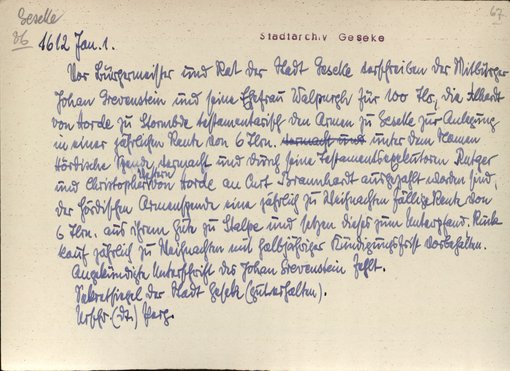 Geseke
86
67
Stadtarchiv Geseke
1612 Jan. 1.
Vor Bürgermeister und Rat der Stadt Geseke verschreiben der Mitbürger
Johan Grevenstein und seine Ehefrau Walpurgh für 100 Tlr., die Albardt
von Horde zu Stormbde testamentarisch den Armen zu Geseke zur Anlegung
in einer jährlichen Rente von 6 Tlrn. vermacht und unter dem Namen
Hördische Spende vermacht und durch seine Testamentsexekutoren Rutger
und Christopher Vettern von Horde an Curt Braunhardt ausgezahlt worden sind,
der Hördischen Armenspende eine jährlich zu Weihnachten fällige Rente von
6 Tlrn. aus ihrem Gute zu Stalpe und setzen dieses zum Unterpfand. Rück
kauf jährlich zu Weihnachten mit halbjähriger Kündigungsfrist vorbehalten.
Angekündigte Unterschrift des Johan Grevenstein fehlt.
Sekretsiegel der Stadt Geseke (gut erhalten).
Urschr. (dt.) Perg.